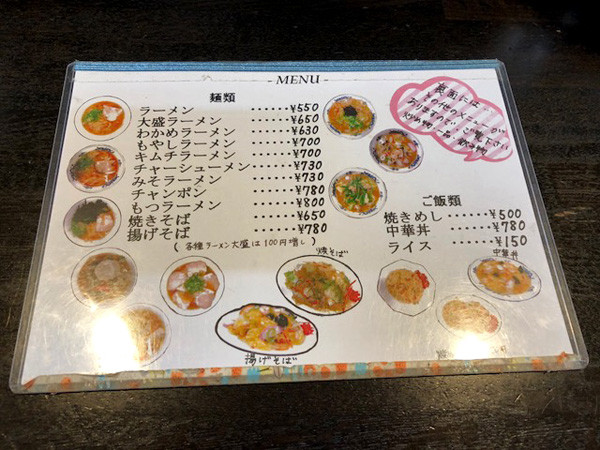 - MENU -
麺類
ラーメン ・・・・・・¥550
大盛ラーメン ・・・・・・¥650
わかめラーメン ・・・・・・¥630
もやしラーメン ・・・・・・¥700
キムチラーメン ・・・・・・¥700
チャーシューメン ・・・・・・¥730
みそラーメン ・・・・・・¥730
チャンポン ・・・・・・¥780
もつラーメン ・・・・・・¥800
焼きそば ・・・・・・¥650
揚げそば ・・・・・・¥780
(各種ラーメン大盛は100円増し)
裏面には
その他のメニューが
ありますので、ご覧下さい
ご飯類
焼きめし・・・・・・¥500
中華丼 ・・・・・・¥780
ライス ・・・・・・¥150
焼そば
中華丼
揚げそば